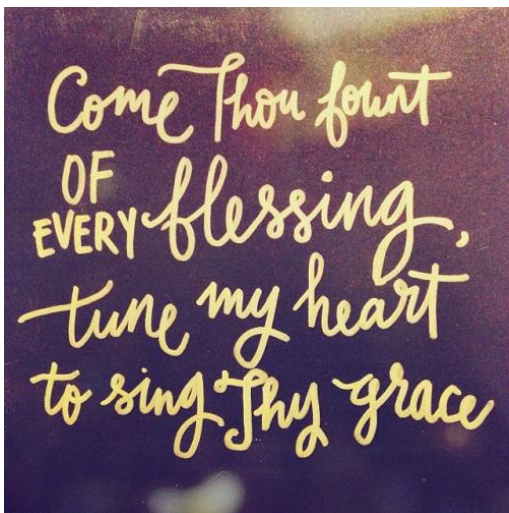 Come Thou fount
OF
EVERY blessing,
tune my heart
to sing Thy grace